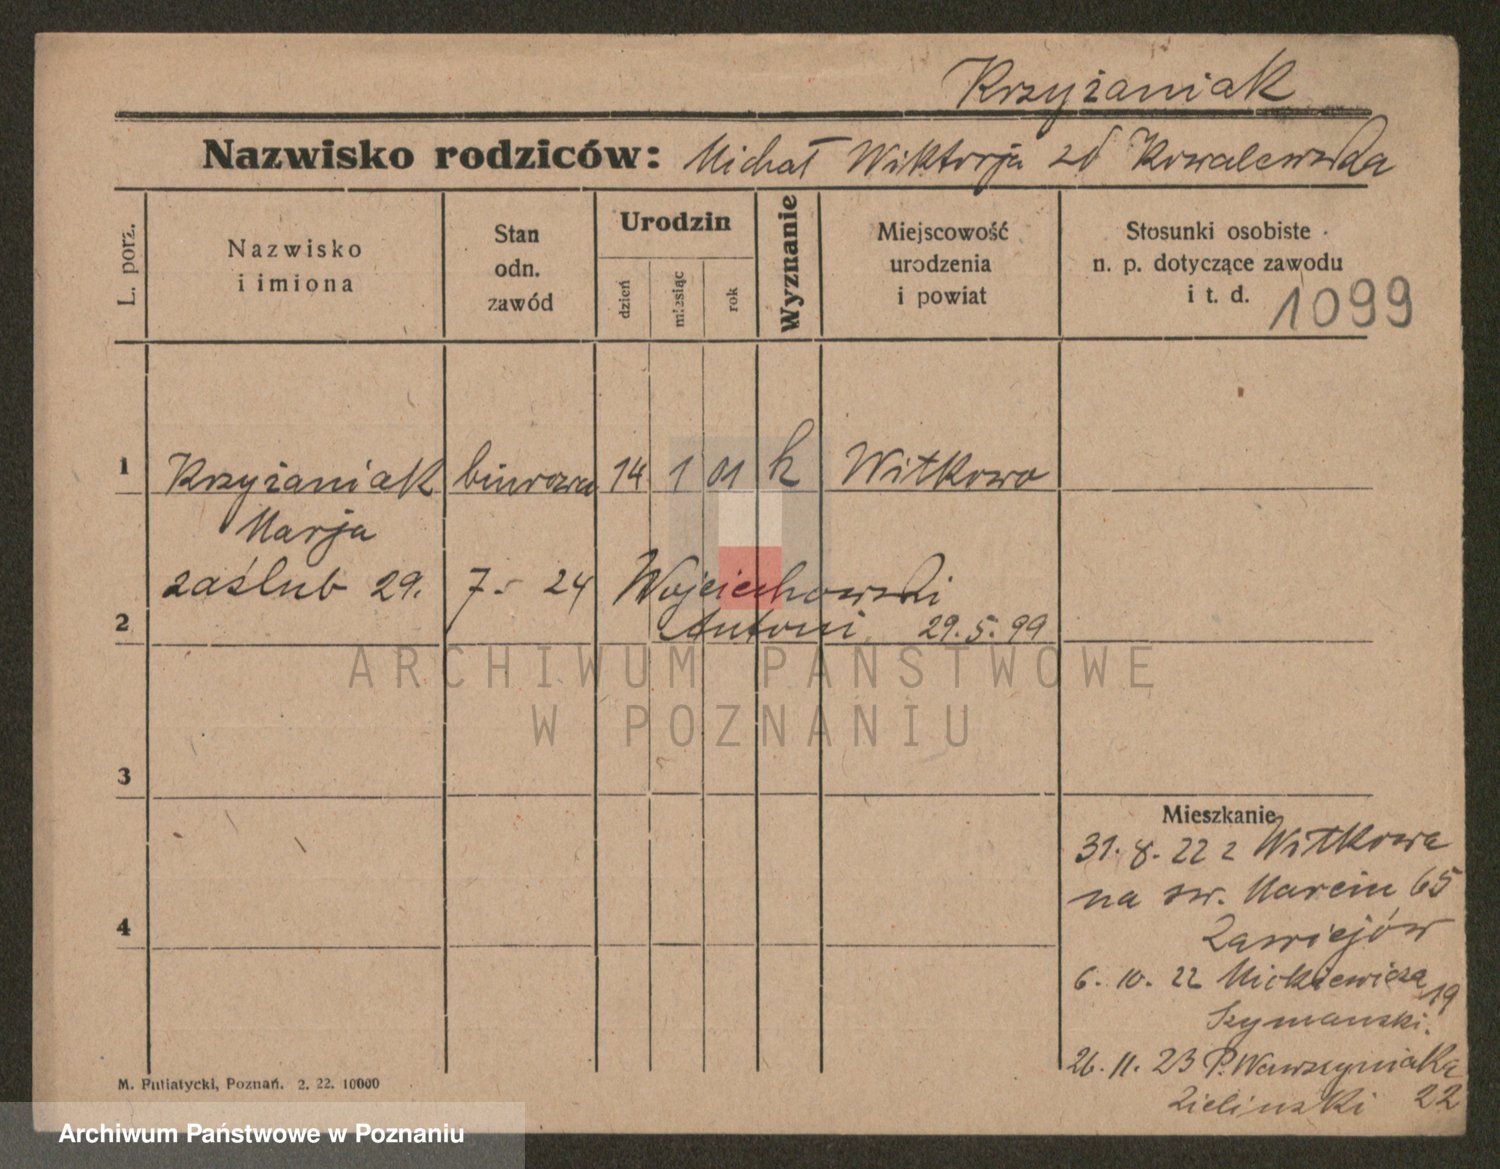 Krzyżaniak
Nazwisko rodziców: Michał Wiktorja zd Kowalewska
L. porz.
Nazwisko
i imiona
Stan
odn.
zawód
Urodzin
dzień
miesiąc
rok
Wyznanie
Miejscowość
urodzenia
i powiat
Stosunki osobiste
n. p. dotyczące zawodu
i t. d.
1099
1 Krzyżaniak biurowa 14 1 01 k Witkowo
Marja
zaślub 29. 7. 24 Wojciechowski
2 Antoni 29.5.99
ARCHIWUM PAŃSTWOWE
W POZNANIU
3
Mieszkanie
31. 8. 22 z Witkowa
na św. Marcin 65
4
6. 10. 22 Mickiewicza 19
Szymanski.
26. 11. 23 P. Wawrzyniaka
Zielinski 22
M. Putiatycki, Poznań. 2. 22. 10000
Archiwum Państwowe w Poznaniu